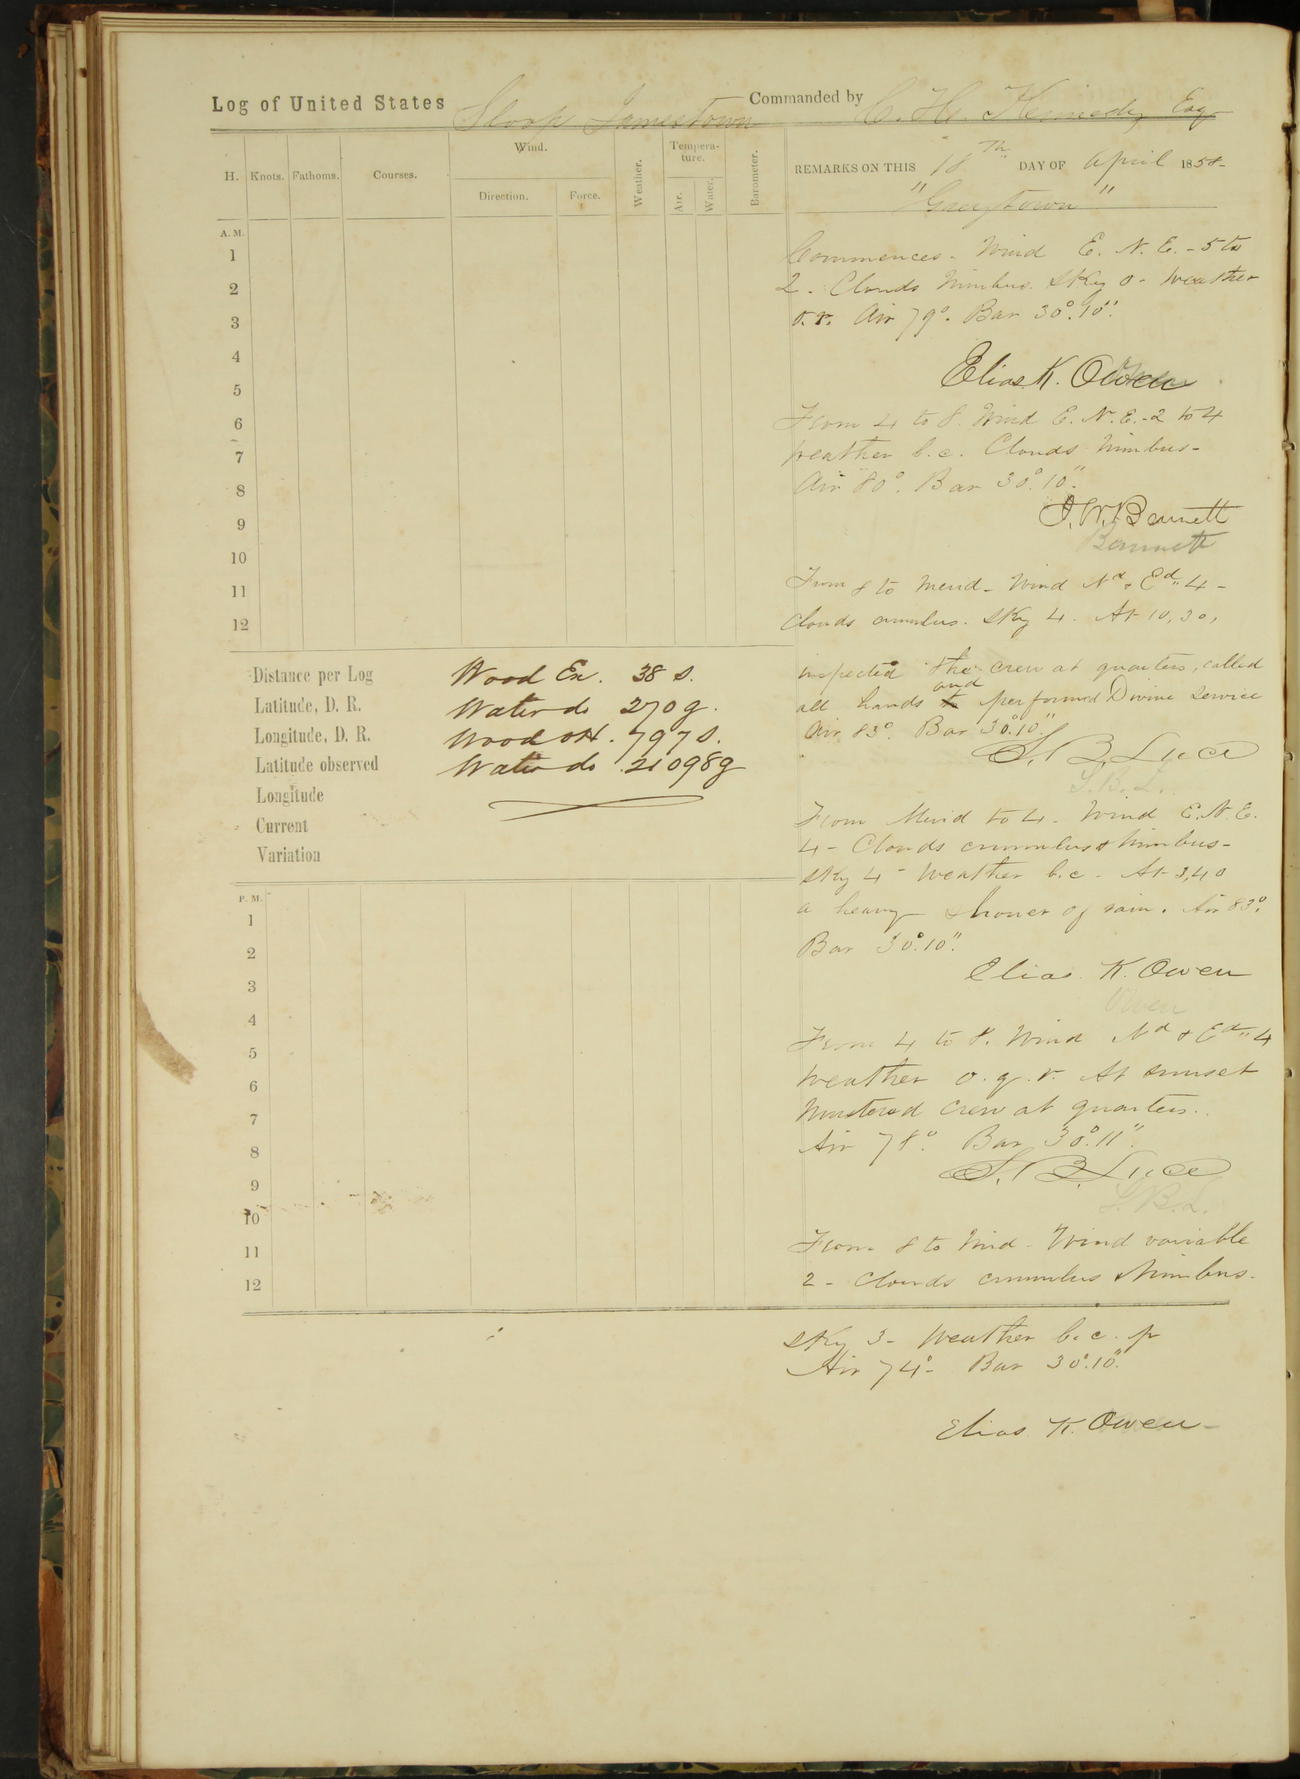 Log of United States Sloop Jamestown Commanded by C. H. Kennedy Esq
H. Knots. Fathoms. Courses. Wind. Direction. Force. Weather. Temperature. Air. Water. Barometer.
REMARKS ON THIS 18th DAY OF April 1858-
"Greytown"
A. M.
1
2
3
4
5
6
7
8
9
10
11
12
Commences - Wind E. N. E. - 5 to
2 - Clouds Nimbus. Sky 0 - Weather
o. r. Air 79°. Bar 30°.10".
Elias K. Owen
From 4 to 8. Wind E. N. E. - 2 to 4
Weather b. c. Clouds Nimbus -
Air 80°. Bar 30°.10".
J. W. Bennett
Bennett
From 8 to Merid - Wind Nd & Ed " 4 -
Clouds cumulus. Sky 4. At 10,30,
inspected the crew at quarters, called
all hands and performed Divine Service
Air 83°. Bar 30°.10"
S. B. Luce
S. B. L.
Distance per Log
Latitude, D. R.
Longitude, D. R.
Latitude observed
Longitude
Current
Variation
Wood Ex. 38 S.
Water do 270 g.
Wood OH. 797 S.
Water do 21098 g
From Merid to 4 - Wind E. N. E.
4 - Clouds cumulus & Nimbus -
Sky 4 - Weather b. c - At 3,40
a heavy shower of rain. Air 83°.
Bar 30°.10".
Elias K. Owen
Owen
From 4 to 8. Wind Nd & Ed " 4
Weather o. q. r. At sunset
Mustered crew at quarters.
Air 78° Bar 30°.11".
S. B. Luce
S. B. L.
From 8 to Mid - Wind variable
2 - Clouds cumulus & Nimbus.
P. M.
1
2
3
4
5
6
7
8
9
10
11
12
Sky 3 - Weather b. c. p
Air 74° - Bar 30°.10".
Elias K. Owen -